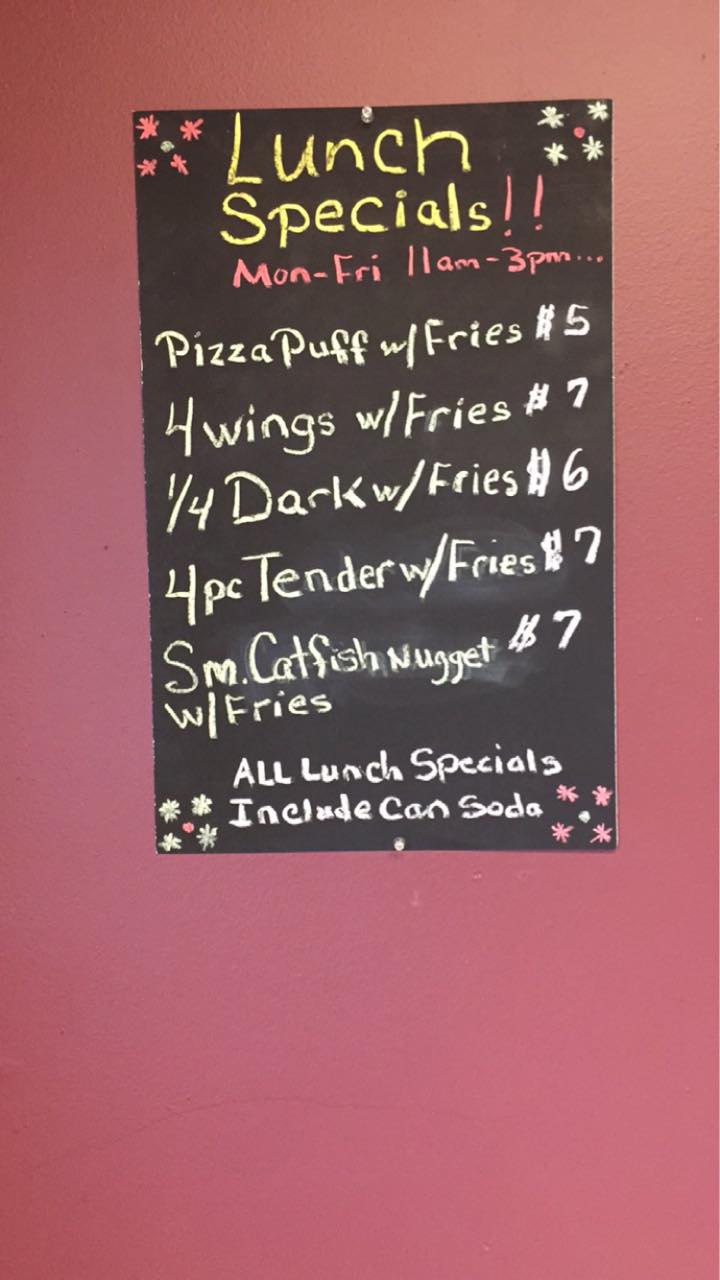 Lunch
Specials!!
Mon-Fri 11am-3pm...
Pizza Puff w/Fries $5
4 wings w/Fries $7
1/4 Dark w/Fries $6
4pc Tender w/Fries $7
Sm. Catfish Nugget $7
w/Fries
ALL Lunch Specials
Include Can Soda